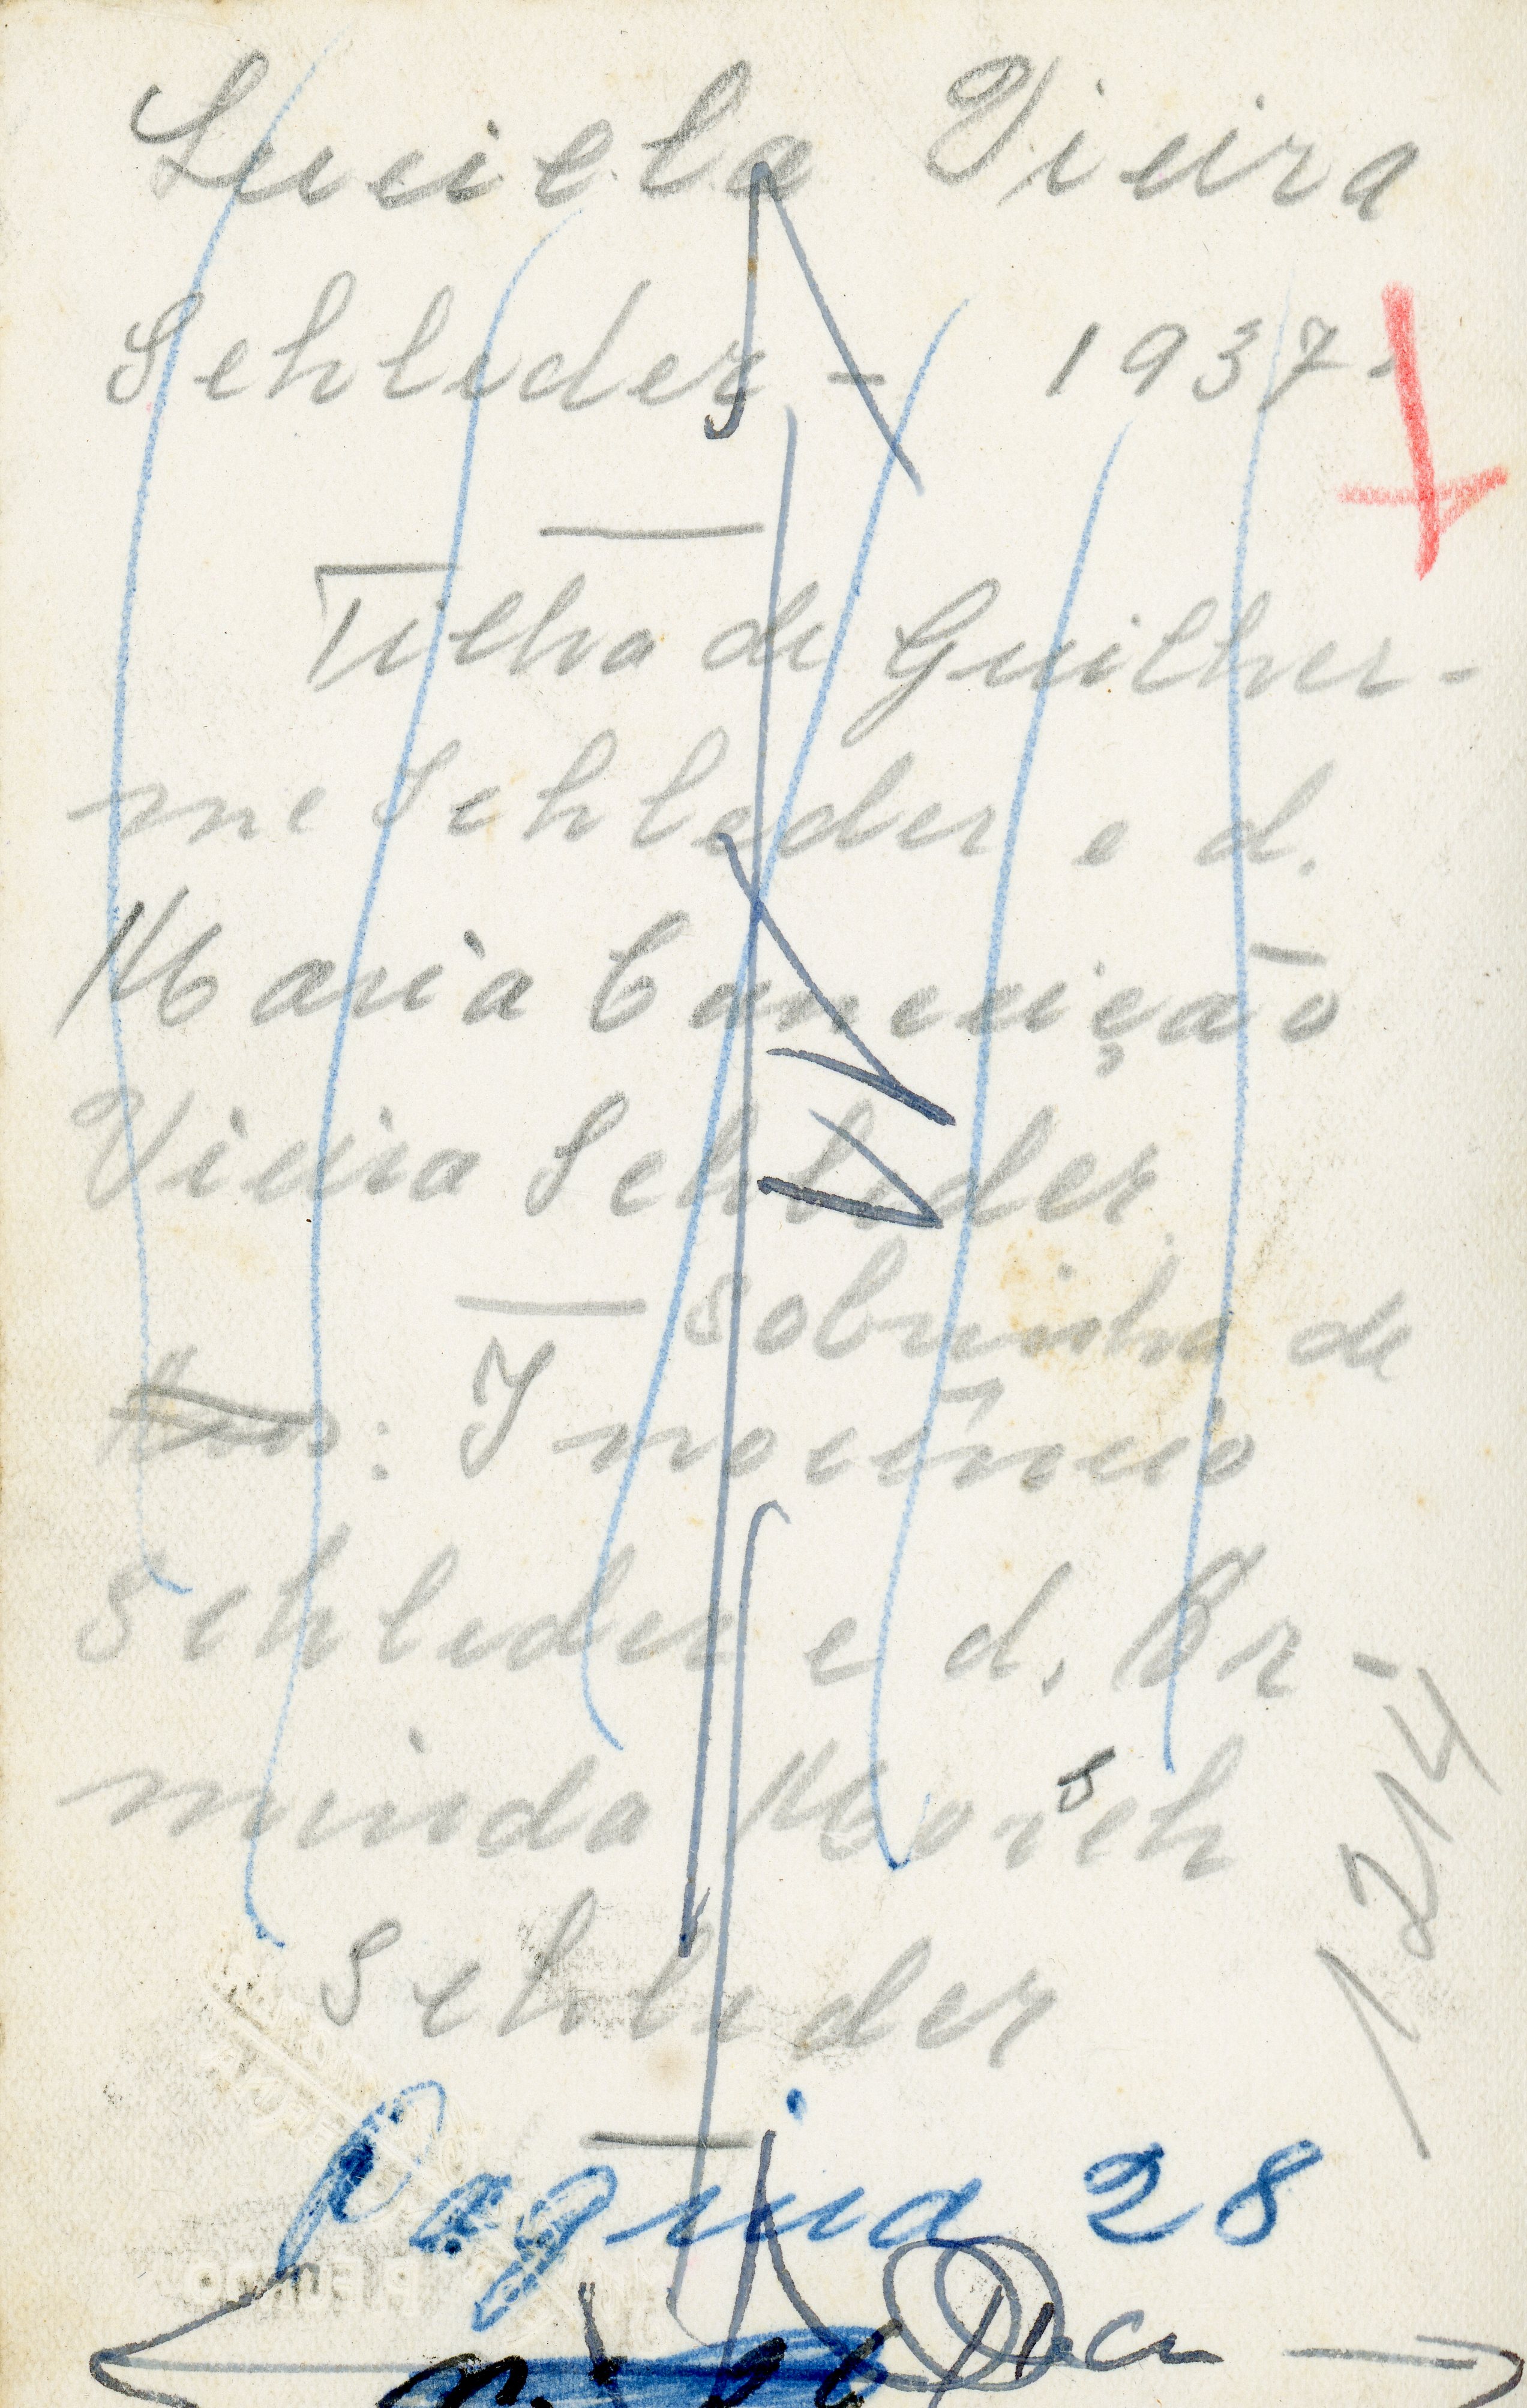 Luciela Vieira
Schleder - 1937.
Filha de Guilher-
me Schleder e d.
Maria Conceição
Vieira Schleder
Sobrinha de
: Inocêncio
Schleder e d. Er-
minda Morsch
Schleder
1214
Pagina 28